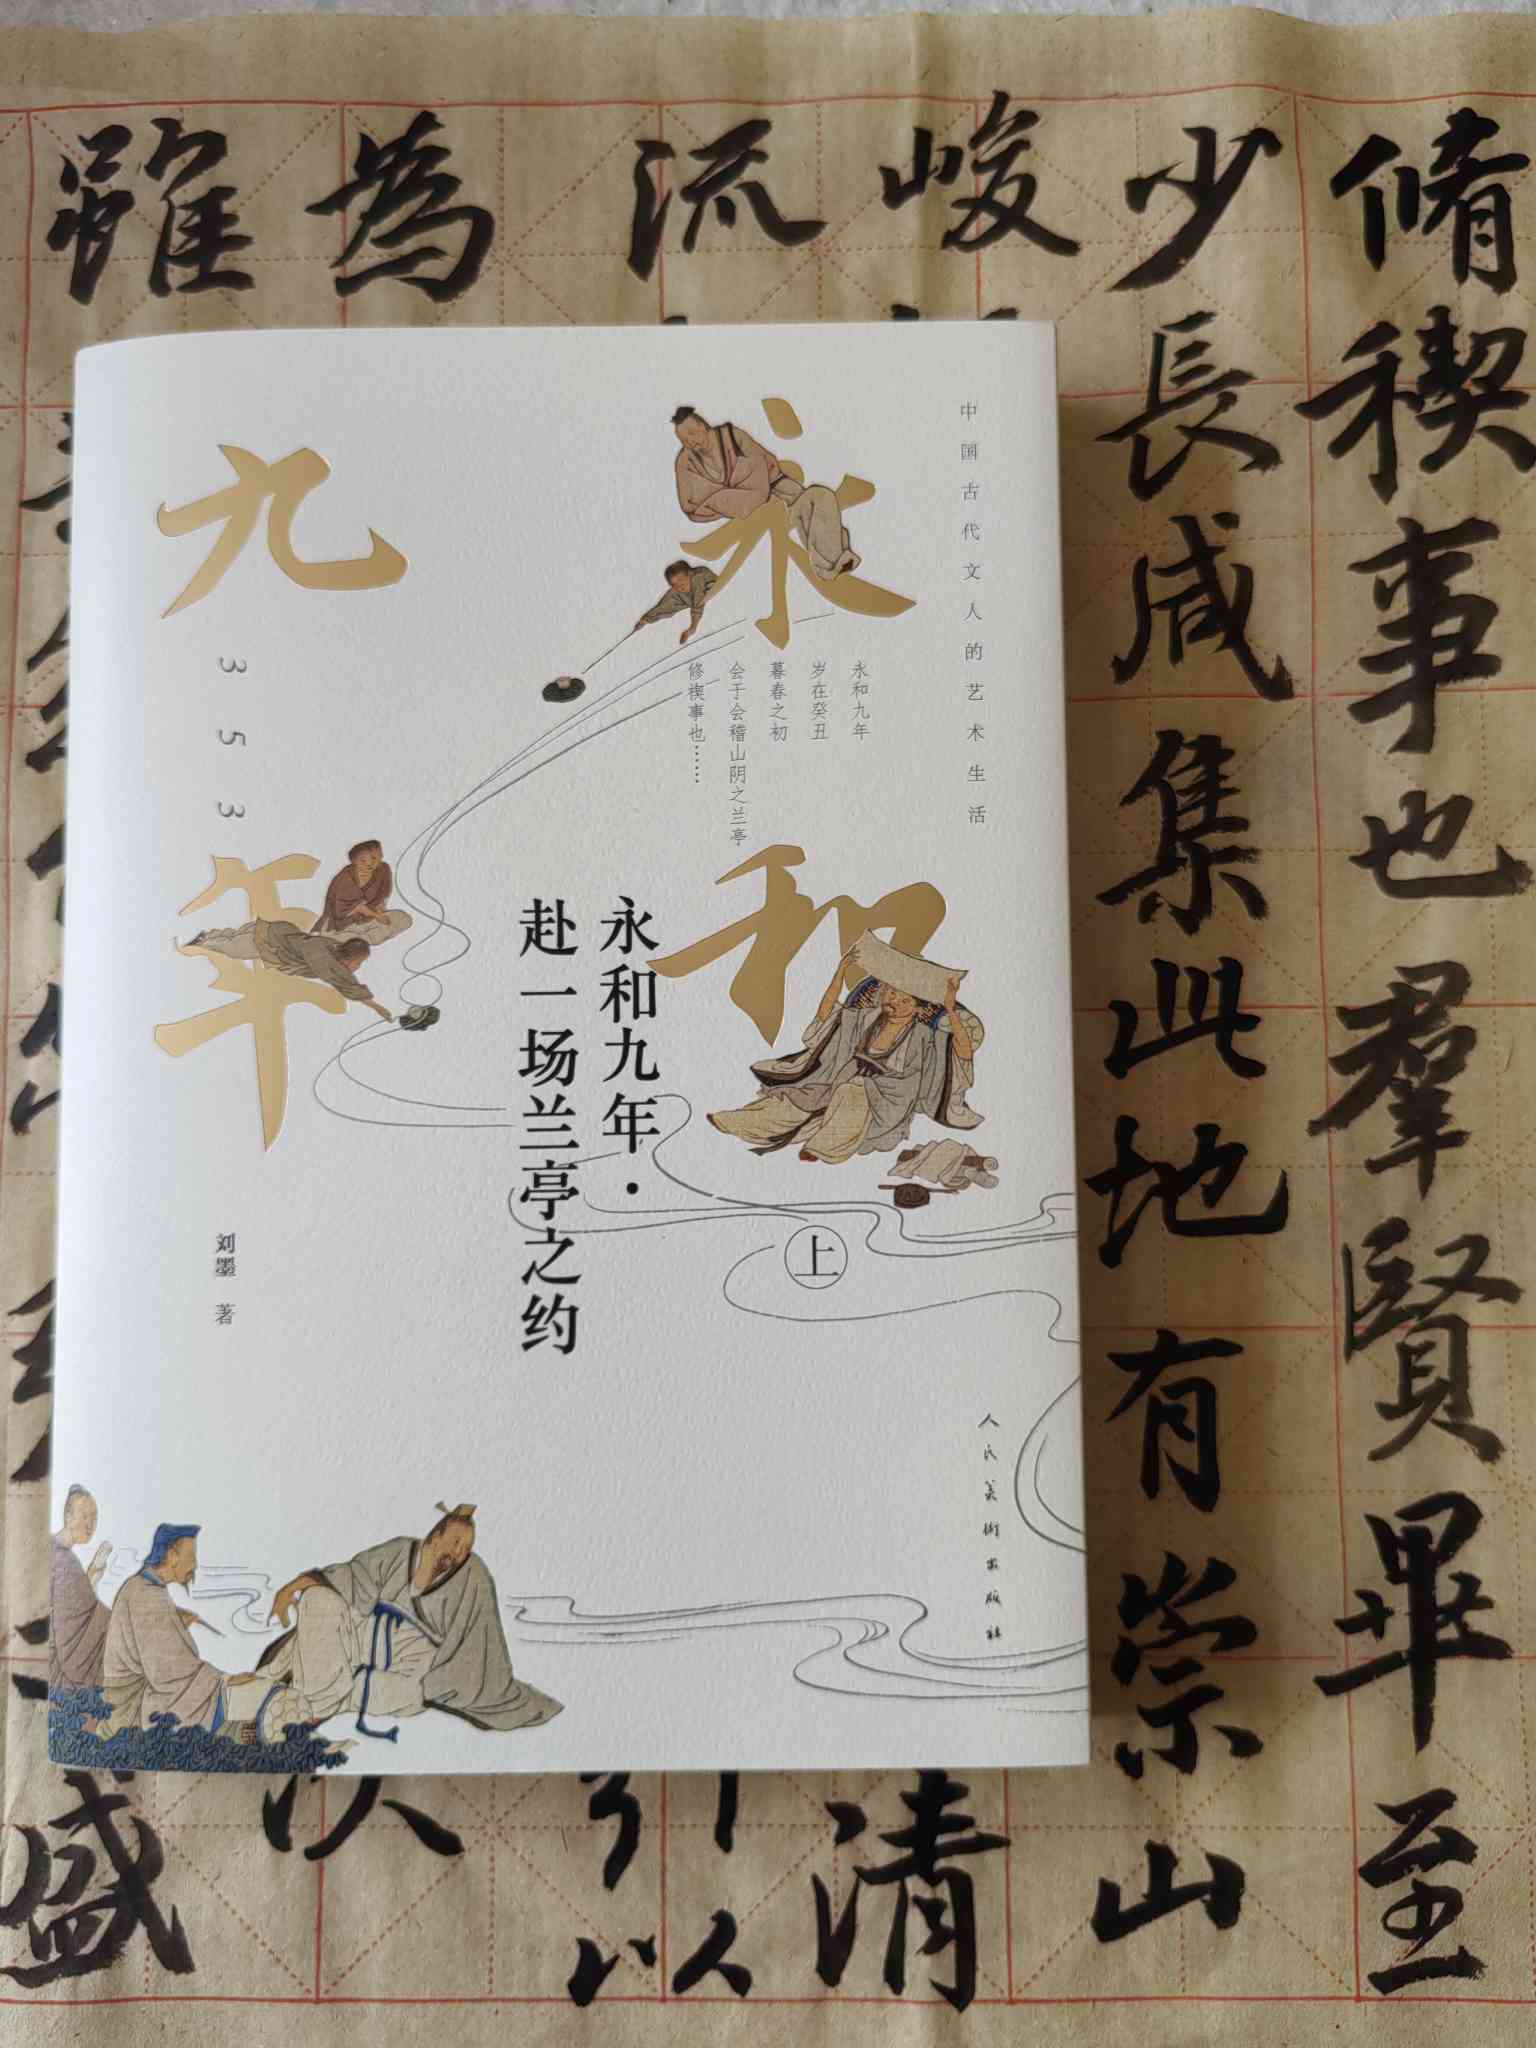 脩稧事也羣賢畢至
少長咸集此地有崇山
峻
清
流
引
以
為
次
雖
盛
中国古代文人的艺术生活
永和
九年
353
永和九年
岁在癸丑
暮春之初
会于会稽山阴之兰亭
修禊事也……
永和九年·
赴一场兰亭之约
上
刘墨 著
人民美術出版社